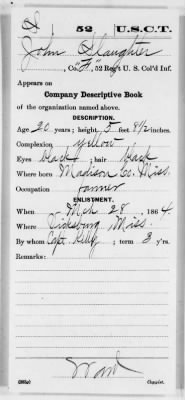 S 52 U.S.C.T.
John Slaughter
, Co. "F", 52 Reg't U. S. Col'd Inf.
Appears on
Company Descriptive Book
of the organization named above.
DESCRIPTION.
Age 20 years; height 5 feet 8½ inches.
Complexion yellow
Eyes black; hair black
Where born Madison Co. Miss.
Occupation farmer
ENLISTMENT.
When Mch 28, 1864.
Where Vicksburg Miss.
By whom Capt. Kelly; term 3 y'rs.
Remarks:
Ward
Copyist.